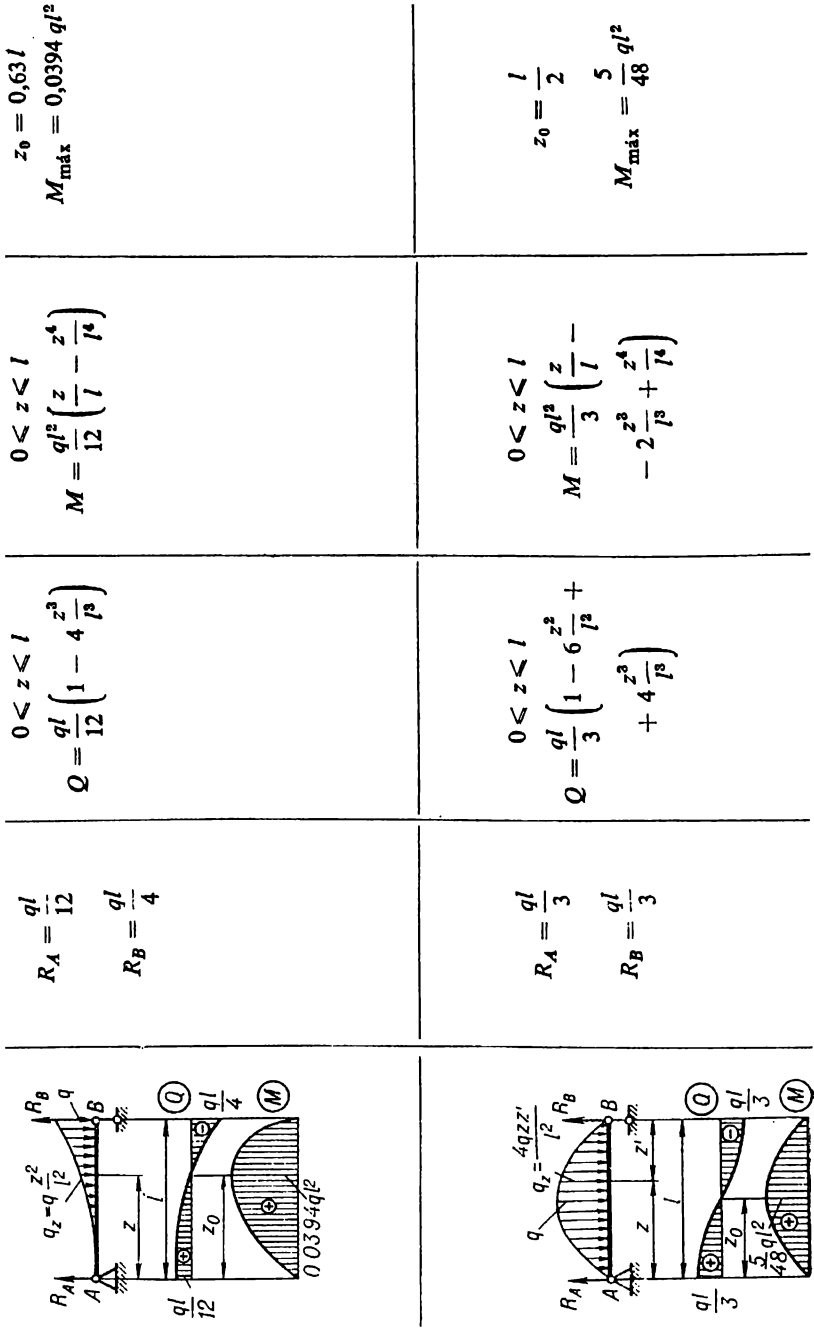 R_A
R_B
q_z = q z²/l²
q
A
B
z
l
ql/12
⊕
⊖
Q
ql/4
z₀
M
⊕
0 0394ql²
R_A = ql/12
R_B = ql/4
0 ⩽ z ⩽ l
Q = ql/12 (1 − 4 z³/l³)
0 ⩽ z ⩽ l
M = ql²/12 (z/l − z⁴/l⁴)
z₀ = 0,63 l
M_máx = 0,0394 ql²
R_A
R_B
q
q_z = 4qzz'/l²
A
B
z
z'
l
ql/3
⊕
⊖
Q
ql/3
z₀
M
5/48 ql²
⊕
R_A = ql/3
R_B = ql/3
0 ⩽ z ⩽ l
Q = ql/3 (1 − 6 z²/l² +
+ 4 z³/l³)
0 ⩽ z ⩽ l
M = ql²/3 (z/l −
− 2 z³/l³ + z⁴/l⁴)
z₀ = l/2
M_máx = 5/48 ql²